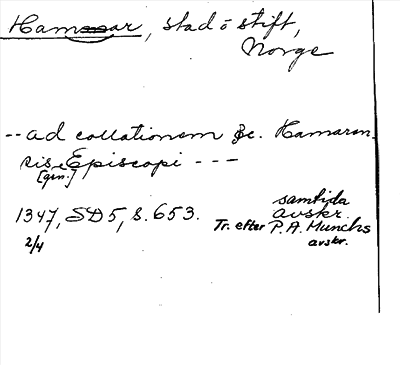 Hamar, stad o stift,
Norge
-- ad collationem &c. Hamaren
sis Episcopi ---
[gen.]
1347, SD5, s. 653.
2/4
samtida
avskr.
Tr. efter P. A. Munchs
avskr.